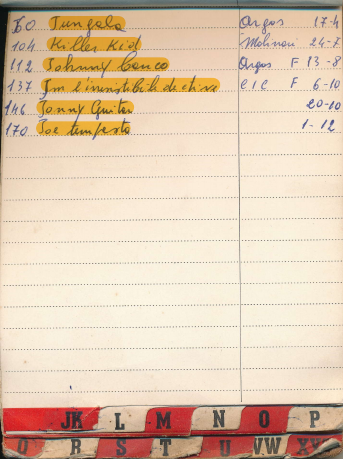 60 Jungala Argos 17-4
104 Killer Kid Molinari 24-7
112 Johnny Banco Argos F 13-8
137 Jim l'irresistibile detective C I C F 6-10
146 Jonny Guitar 20-10
170 Joe tempesta 1-12
JK L M N O P
R S T U VW XY